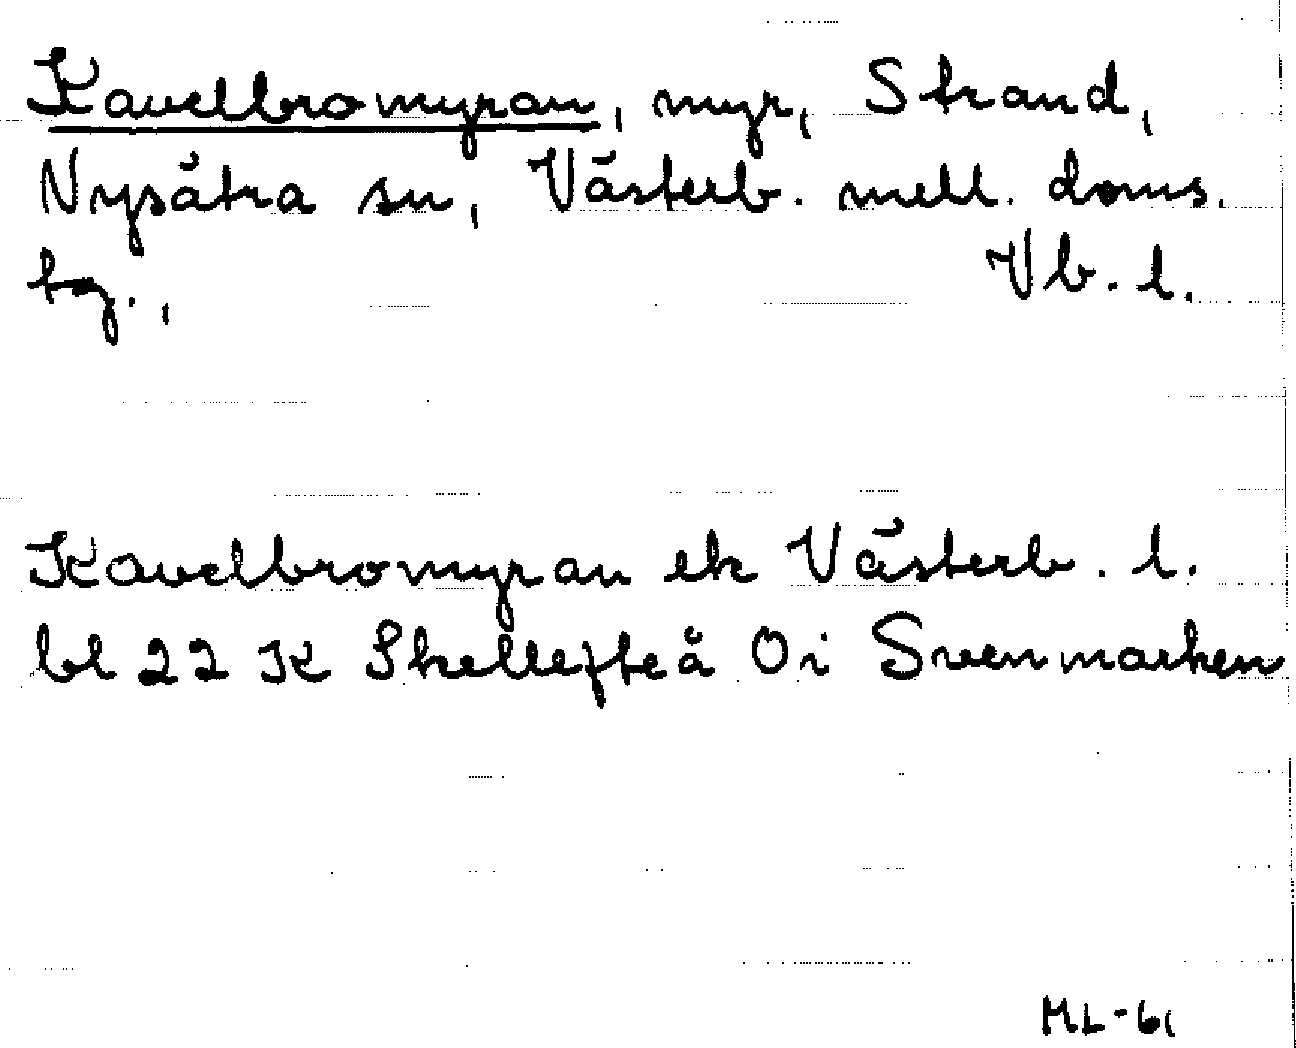 Kavelbromyran, myr, Strand,
Nysätra sn, Västerb. mell. doms.
tg., Vb. l.
Kavelbromyran ek Västerb. l.
bl 22 K Skellefteå Oi Svenmarken
ML-61